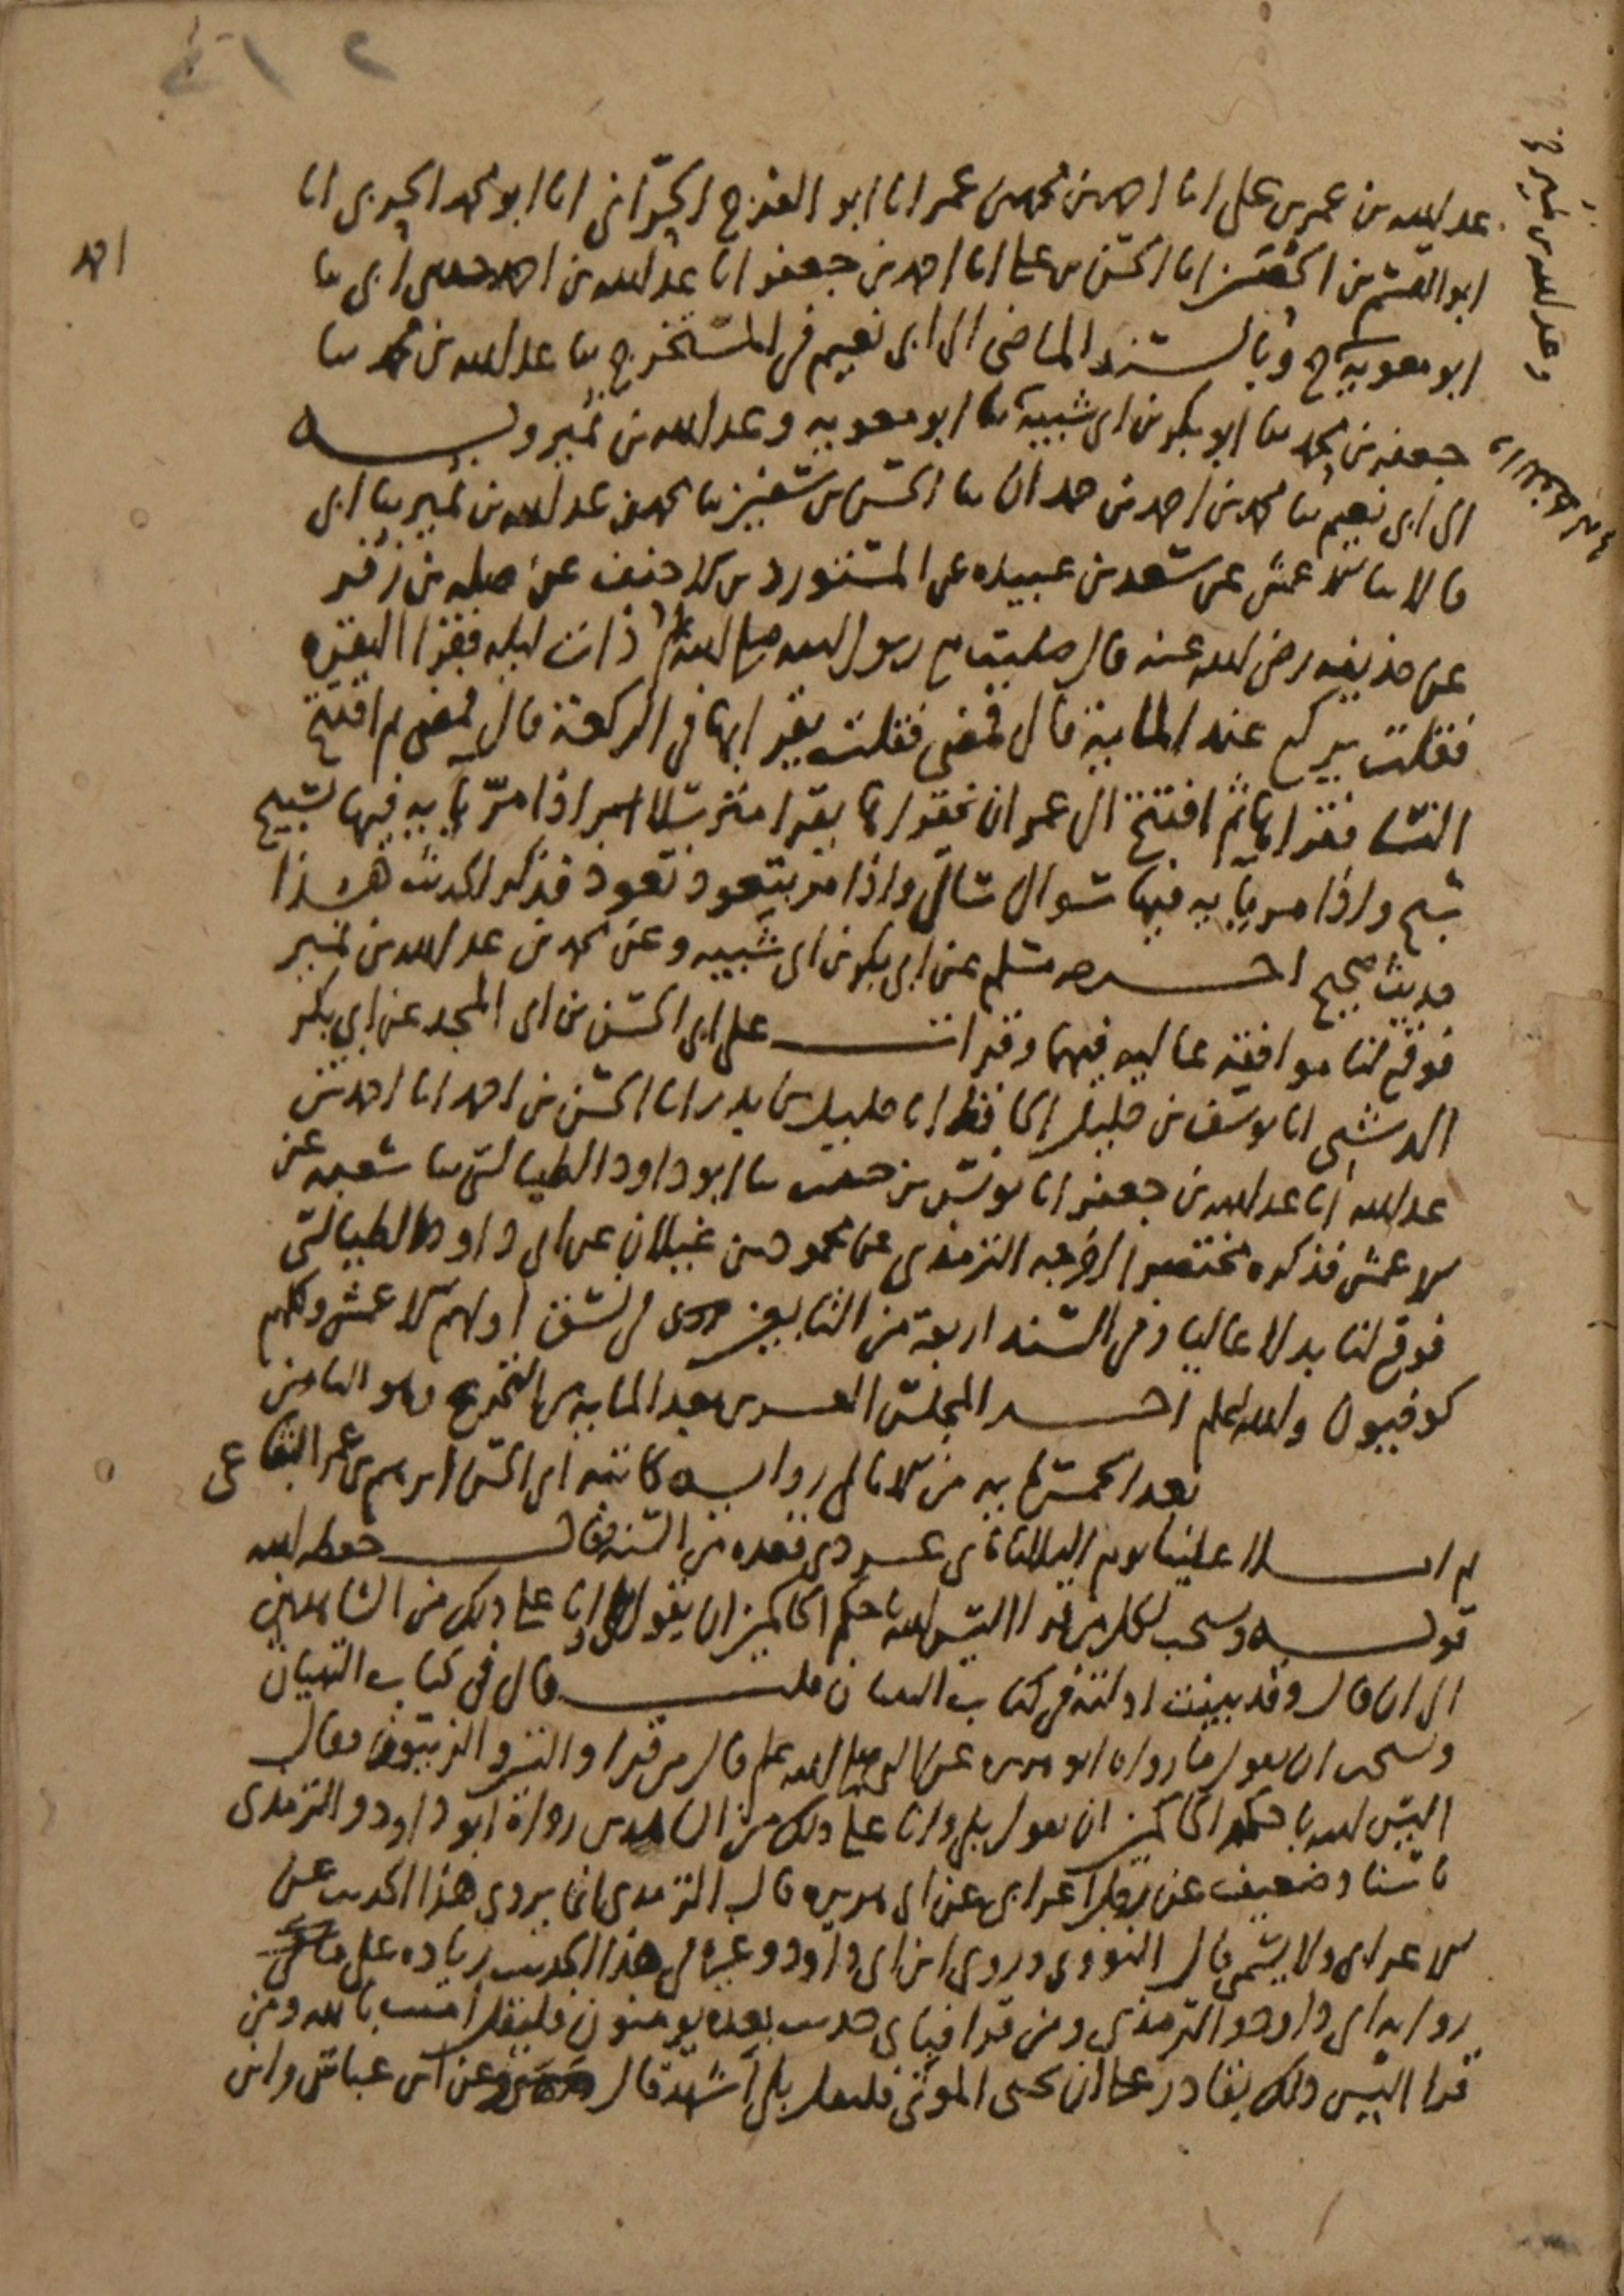 عبد الله بن عمر بن علي انا احمد بن محمد بن عمر انا ابو الفرج الحراني انا ابو محمد الحربي انا
ابو القسم بن الحصين انا الحسن بن علي انا احمد بن جعفر انا عبد الله بن احمد حدثني ابي ثنا
ابو معوية ح وبالسند الماضي الى ابي نعيم في المستخرج ثنا عبد الله بن محمد ثنا
جعفر بن محمد ثنا ابو بكر بن ابي شيبة ثنا ابو معوية وعبد الله بن نمير وبه
الى ابي نعيم ثنا محمد بن احمد بن حمدان ثنا الحسن بن سفين ثنا محمد بن عبد الله بن نمير ثنا ابي
قالا ثنا الاعمش عن سعد بن عبيده عن المستورد بن الاحنف عن صله بن زفر
عن حذيفه رضي الله عنه قال صليت مع رسول الله صلى الله عليه وسلم ذات ليله فقرا البقره
فقلت يركع عند الماية قال فمضى فقلت يقرا بها في الركعة قال فمضى ثم افتتح
النسا فقراها ثم افتتح ال عمران فقراها يقرا مترسلا اذا مر باية فيها تسبيح
سبح واذا مر باية فيها سوال سال واذا مر بتعوذ تعوذ فذكر الحديث هذا
حديث صحيح اخرجه مسلم عن ابي بكر بن ابي شيبه وعن محمد بن عبد الله بن نمير
فوقع لنا موافقة عاليه فيهما وقرات على ابي الحسن بن ابي المجد عن ابي بكر
الدشتي انا يوسف بن خليل الحافظ انا خليل بن بدر انا الحسن بن احمد انا احمد بن
عبد الله انا عبد الله بن جعفر انا يونس بن حبيب ثنا ابو داود الطيالسي ثنا شعبه عن
الاعمش فذكره مختصرا اخرجه الترمذي عن محمود بن غيلان عن ابي داود الطيالسي
فوقع لنا بدلا عاليا وفي السند اربعة من التابعين في نسق اولهم الاعمش وكلهم
كوفيون والله اعلم اخر المجلس العشرين بعد الماية من التخريج وهو الثامن
بعد الخمسماية من الامالي رواية كاتبه ابي الحسن ابرهيم بن عمر البقاعي
ثم املا علينا يوم الثلاثا ثاني عشر ذي قعده من السنة فقال حفظه الله
قوله ويستحب لكل من قرا اليس الله باحكم الحاكمين ان يقول بلى وانا على ذلك من الشاهدين
الى ان قال وقد بينت ادلته في كتاب التبيان قلت قال في كتاب التبيان
ويستحب ان يقول ما رواه ابو هريره عن النبي صلى الله عليه وسلم قال من قرا والتين والزيتون فقال
اليس الله باحكم الحاكمين ان يقول بلى وانا على ذلك من الشاهدين رواه ابو داود والترمذي
باسناد ضعيف عن رجل اعرابي عن ابي هريره قال الترمذي انما يروى هذا الحديث عن
الاعرابي ولا يسمى قال النووي وروى ابن ابي داود وغيره في هذا الحديث زياده على
رواية ابي داود والترمذي ومن قرا فباي حديث بعده يومنون فليقل امنت بالله ومن
قرا اليس ذلك بقادر على ان يحيي الموتى فليقل بلى اشهد قال وعن ابن عباس وابن
احمد
وعبد الله بن نمير ح